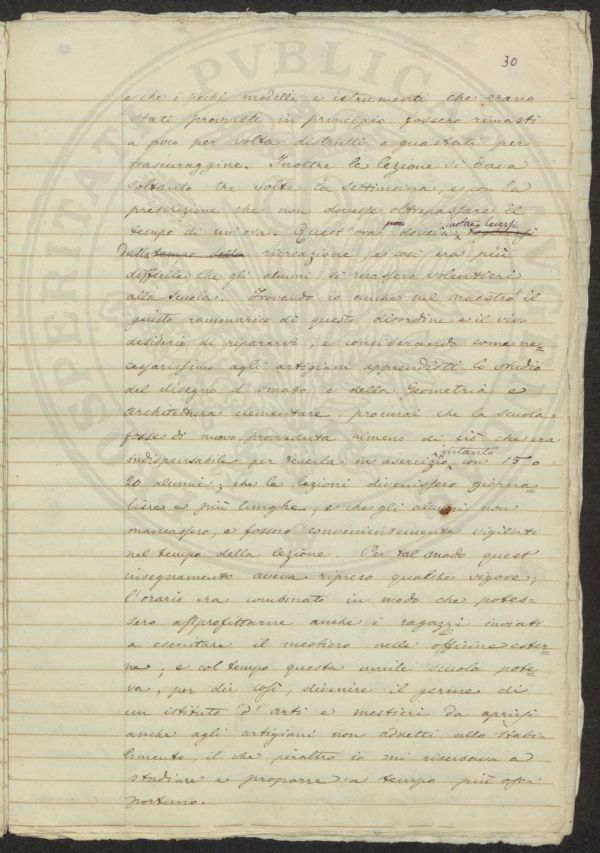 30
e che i pochi modelli e istrumenti che erano
stati provvisti in principio fossero rimasti
a poco per volta distrutti o guastati per
trascuraggine. Inoltre la lezione si dava
soltanto tre volte la settimana, e con la
prescrizione che non dovesse oltrepassare il
tempo di un'ora. Quest'ora poi doveva inoltre levarsi
dalla tempo della ricreazione, e così era più
difficile che gli alunni si recassero volentieri
alla scuola. Trovando io anche nel maestro il
giusto rammarico di questo disordine e il vivo
desiderio di ripararvi, e considerando come ne=
cessarissimo agli artigiani apprendisti lo studio
del disegno d'ornato e della Geometria e
Architettura elementare procurai che la scuola
fosse di nuovo proveduta almeno di ciò che era
indispensabile per tenerla in esercizio intanto con 15 o
20 alunni; che le lezioni divenissero giorna=
liere e più lunghe, e che gli alunni non
mancassero, e fossero convenientemente vigilati
nel tempo della lezione. Per tal modo quest'
insegnamento aveva ripreso qualche vigore;
l'orario era combinato in modo che potes=
sero approfittarne anche i ragazzi inviati
a esercitare il mestiero nelle officine ester=
ne; e col tempo questa umile scuola pote=
va, per dir così, divenire il germe di
un istituto d'arti e mestieri da aprirsi
anche agli artigiani non addetti allo Stabi=
limento, il che peraltro io mi riservava a
studiare e proporre a tempo più op=
portuno.
OSPERITATI PVBLICAE AVGENDAE